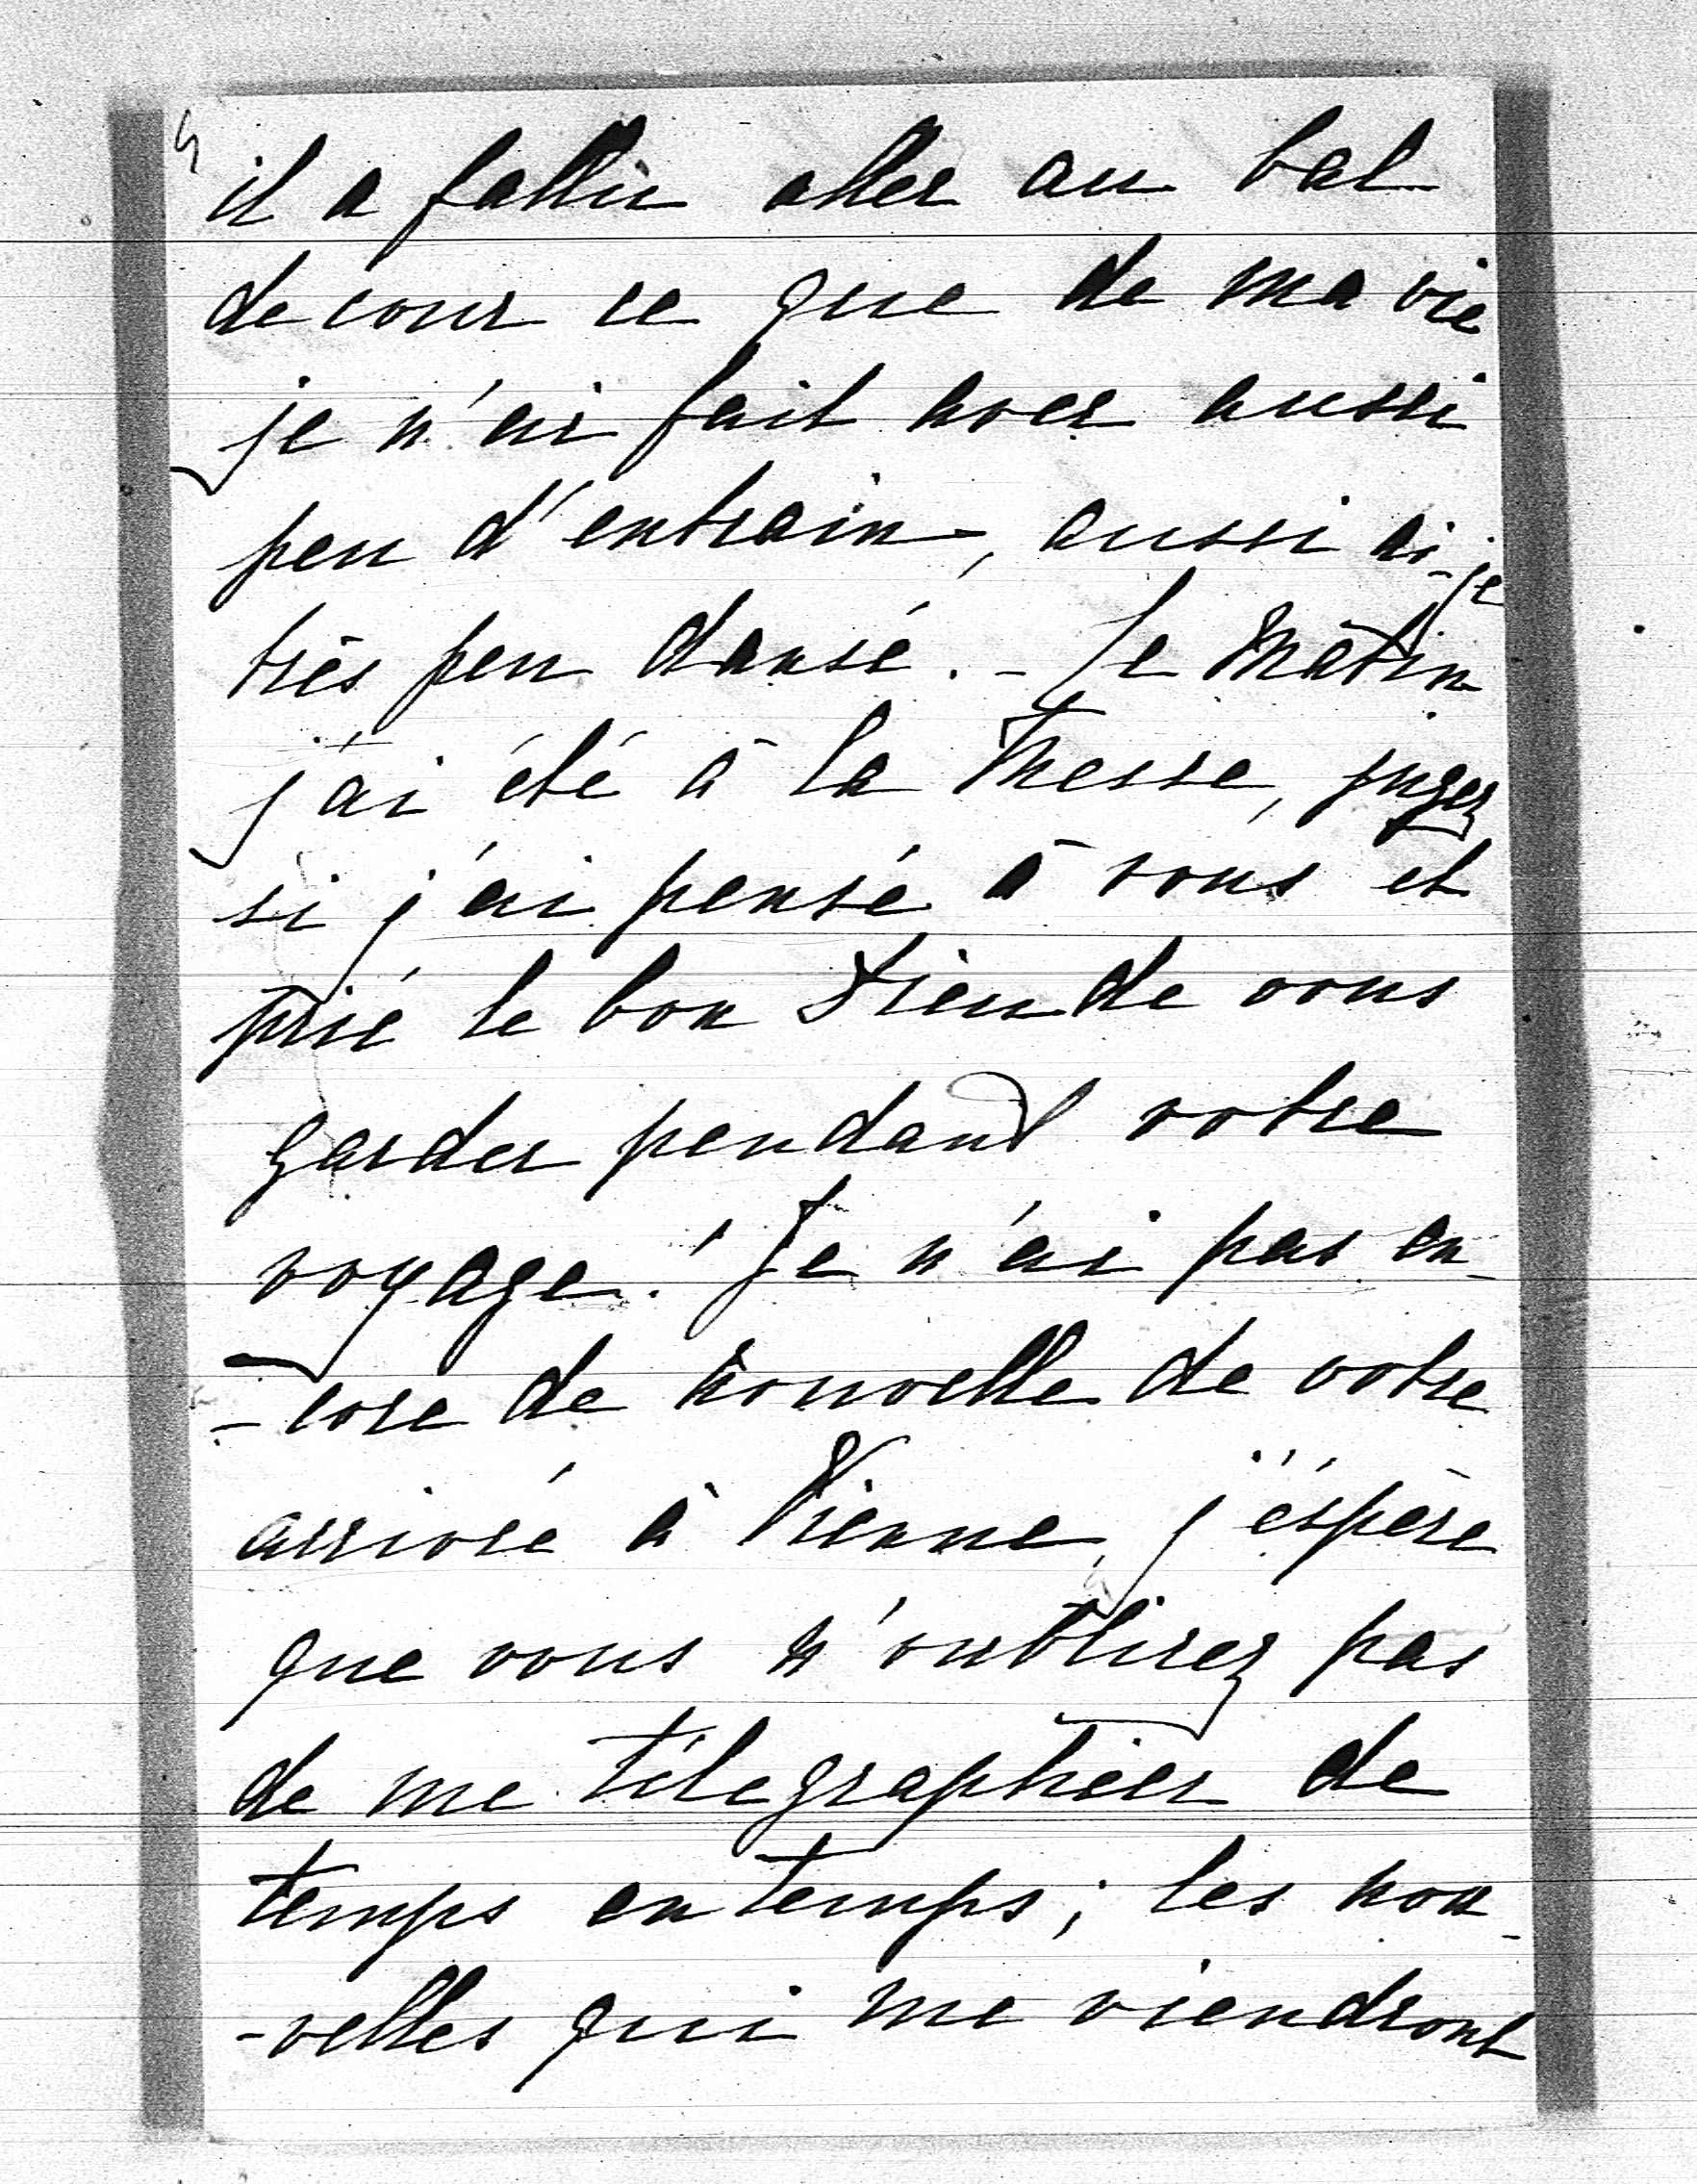 il a fallu aller au bal
de cour ce que de ma vie
je n'ai fait avec aussi
peu d'entrain, aussi ai-je
très peu dansé. - Le matin
j'ai été à la Messe, jugez
si j'ai pensé à vous et
prié le bon Dieu de vous
garder pendant votre
voyage! Je n'ai pas en-
-core de nouvelle de votre
arrivée à Vienne, j'éspère
que vous n'oublirez pas
de me télegraphier de
temps en temps; les nou-
-velles qui me viendront